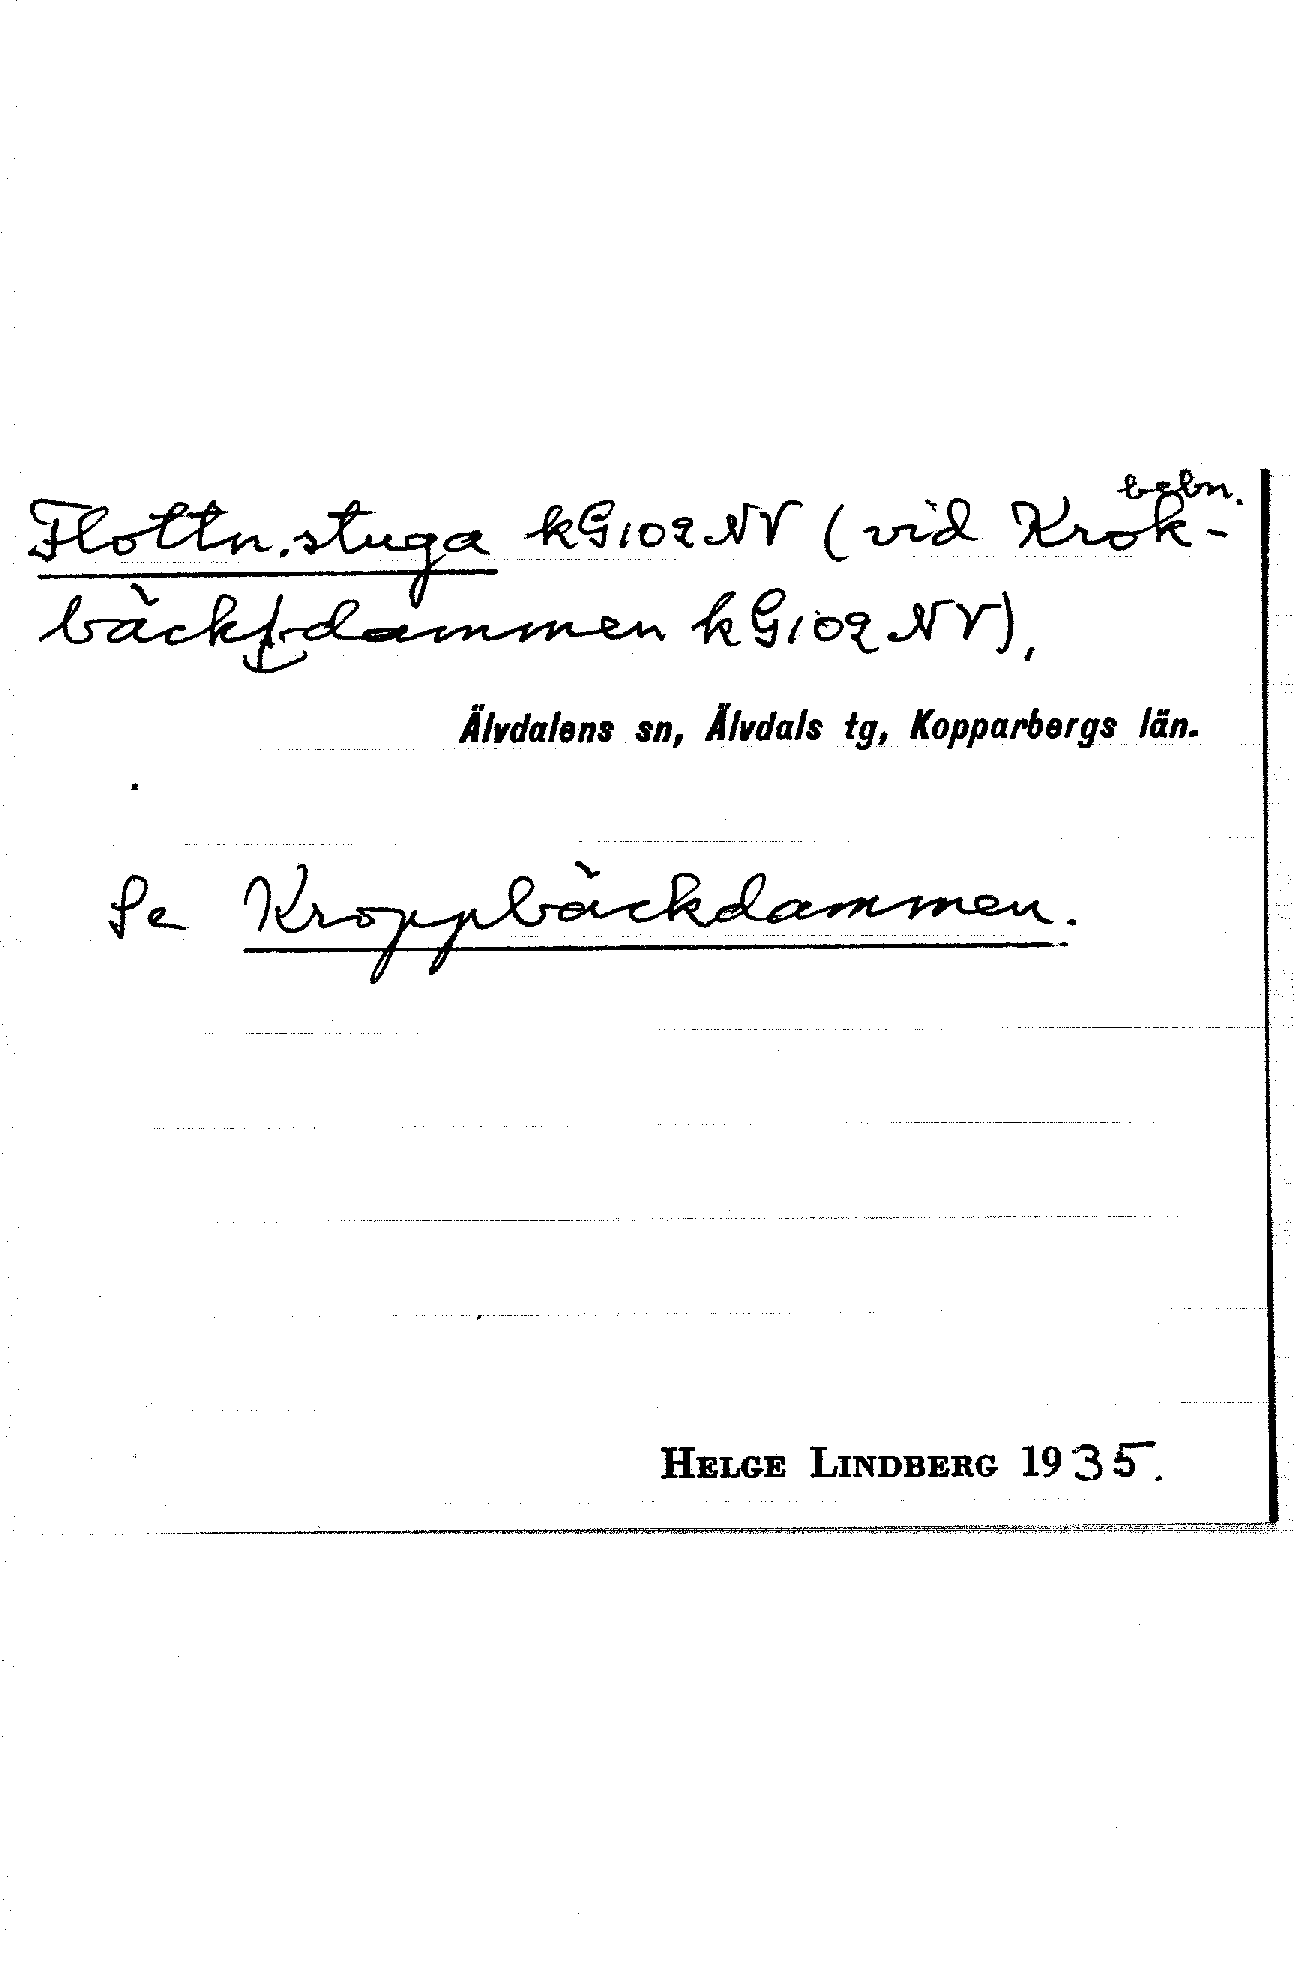 bebn.
Flottn.stuga kG102NV (vid Krok-
bäckdammen kG102NV),
Älvdalens sn, Älvdals tg, Kopparbergs län.
Se Kroppbäckdammen.
HELGE LINDBERG 1935.